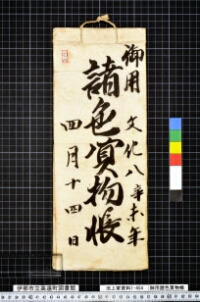 御用
文化八辛未年
諸色買物帳
四月十四日
伊那市立高遠町図書館